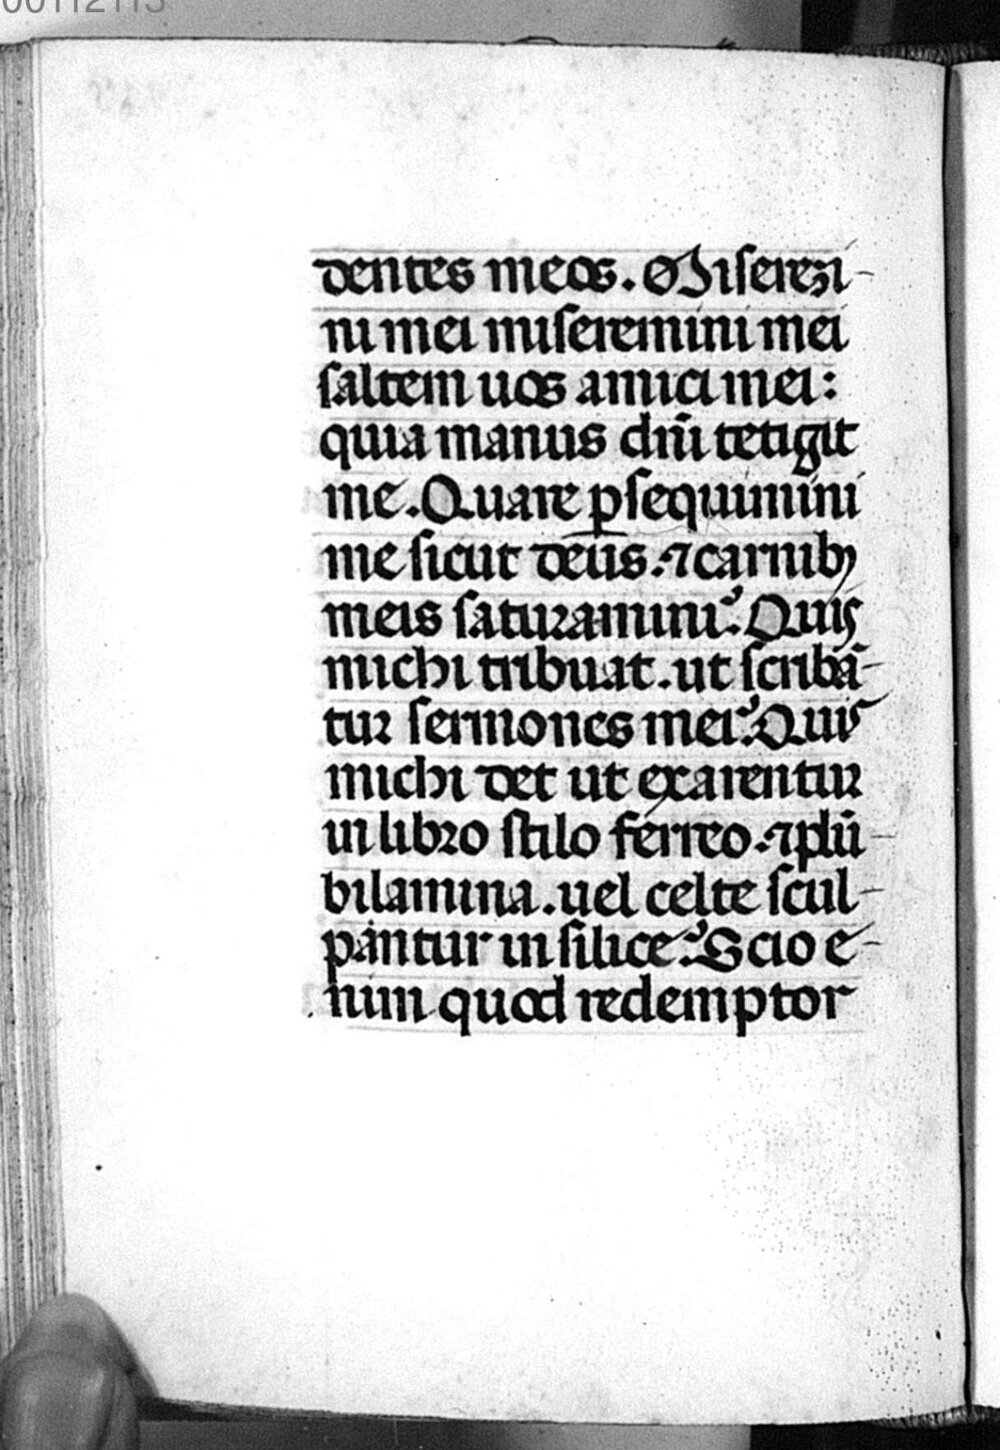 00112113
dentes meos. Miserezi-
ni mei miseremini mei
saltem uos amici mei:
quia manus dn̄i tetigit
me. Quare ꝑsequimini
me sicut deus. ⁊ carnibꝫ
meis saturamini? Quis
michi tribuat. ut scribā-
tur sermones mei? Quis
michi det ut exarentur
in libro stilo ferreo. ⁊ plū-
bi lamina. uel celte scul-
pantur in silice? Scio e-
nim quod redemptor